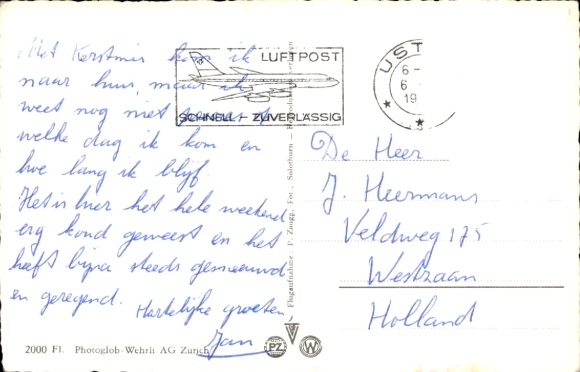 Met Kerstmis kom ik
naar huis, maar ik
weet nog niet
welke dag ik kom en
hoe lang ik blijf.
Het is hier het hele weekend
erg koud geweest en het
heeft bijna steeds gesneeuwd
en geregend. Hartelijke groeten,
Jan
LUFTPOST
SCHNELL - ZUVERLÄSSIG
UST
6-
6
19
De Heer
J. Heermans
Veldweg 175
Westzaan
Holland
Flugaufnahme: F. Zaugg, Fot., Solothurn
2000 Fl. Photoglob-Wehrli AG Zürich
PZ W